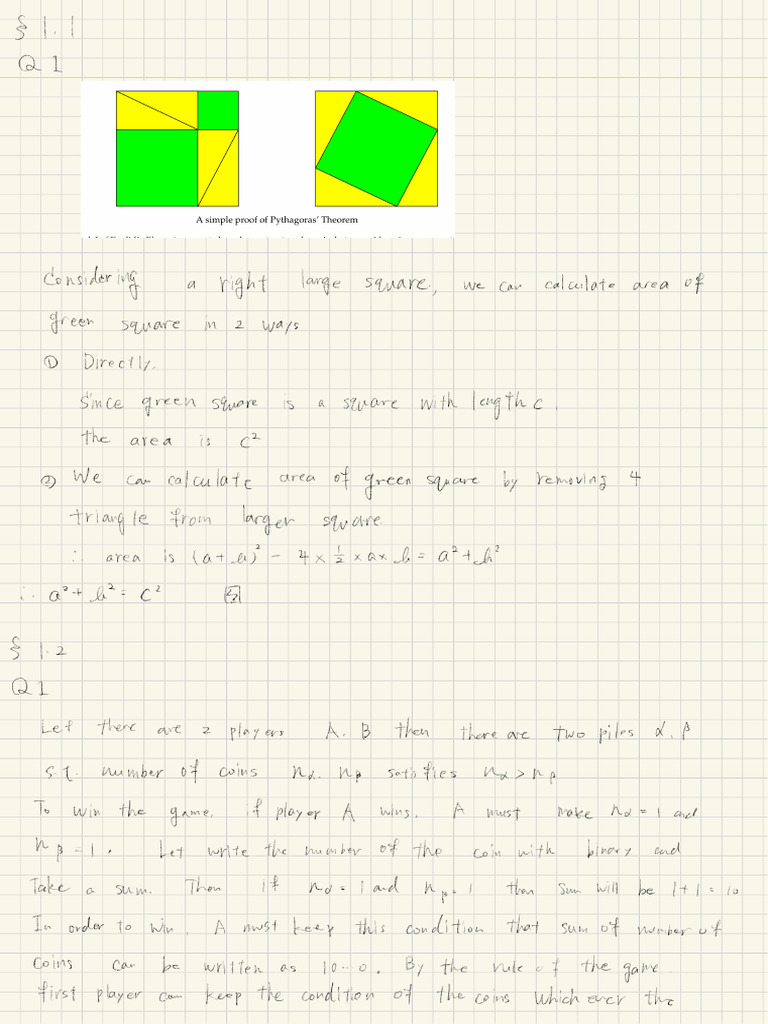 § 1.1
Q 1
A simple proof of Pythagoras' Theorem
Considering a right large square, we can calculate area of
green square in 2 ways
① Directly.
Since green square is a square with length c.
the area is c²
② We can calculate area of green square by removing 4
triangle from larger square.
∴ area is (a+b)² - 4 × ½ × a × b = a² + b²
∴ a² + b² = c²
§ 1.2
Q 1
Let there are 2 players A. B then there are two piles α, β
s.t. number of coins nα. nβ satisfies nα > nβ
To win the game. if player A wins. A must make nα = 1 and
nβ = 1. Let write the number of the coin with binary and
Take a sum. Then if nα = 1 and nβ = 1 then sum will be 1+1 = 10
In order to win. A must keep this condition that sum of number of
coins can be written as 10...0. By the rule of the game.
first player can keep the condition of the coins whichever the